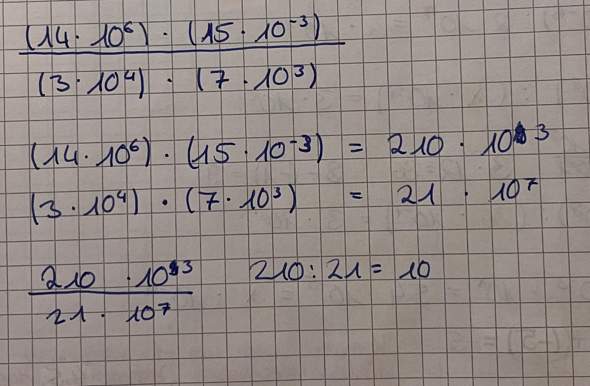 (14 · 10⁶) · (15 · 10⁻³)
(3 · 10⁴) · (7 · 10³)
(14 · 10⁶) · (15 · 10⁻³) = 210 · 10³
(3 · 10⁴) · (7 · 10³) = 21 · 10⁷
210 · 10³ 210 : 21 = 10
21 · 10⁷